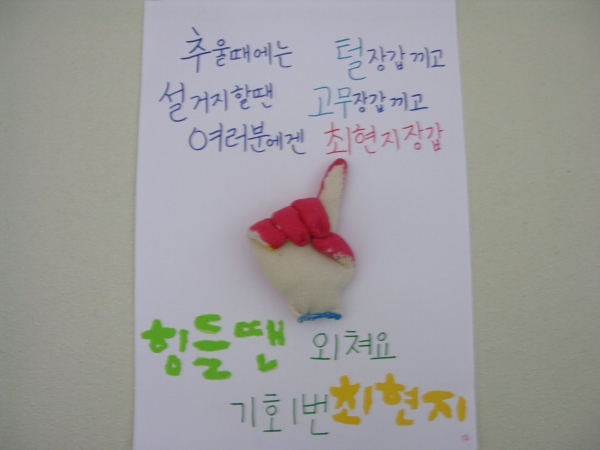 추울때에는 털장갑끼고
설거지할땐 고무장갑끼고
여러분에겐 최현지장갑
힘들땐 외쳐요
기호1번최현지